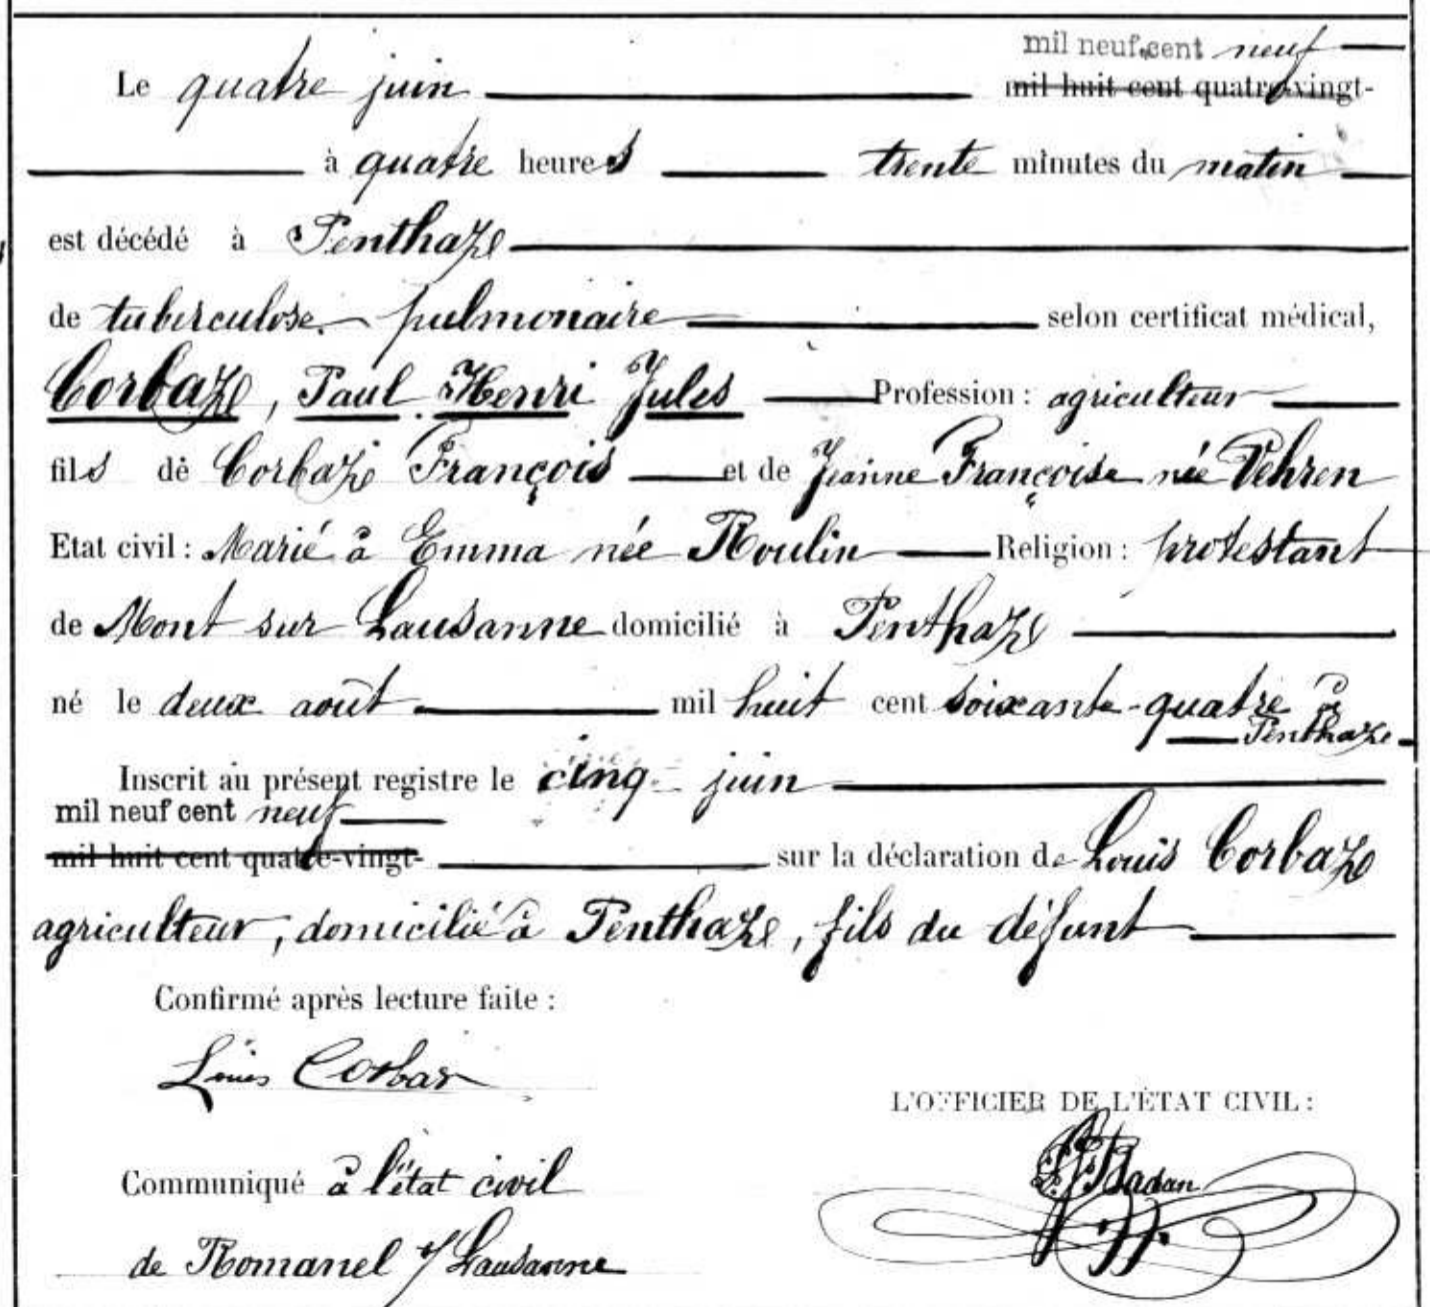 mil neuf cent neuf
Le quatre juin mil huit cent quatre-vingt-
à quatre heures trente minutes du matin
est décédé à Penthaze
de tuberculose pulmonaire selon certificat médical,
Corbaze, Paul Henri Jules Profession : agriculteur
fils de Corbaze François et de Jeanne Françoise née Vehren
Etat civil : Marié à Emma née Roulin Religion : protestant
de Mont sur Lausanne domicilié à Penthaze
né le deux août mil huit cent soixante-quatre à
Penthaze
Inscrit au présent registre le cinq juin
mil neuf cent neuf
mil huit cent quatre-vingt- sur la déclaration de Louis Corbaze
agriculteur, domicilié à Penthaze, fils du défunt
Confirmé après lecture faite :
Louis Corbaz
L'OFFICIER DE L'ÉTAT CIVIL :
Badan
Communiqué à l'état civil
de Romanel s/ Lausanne